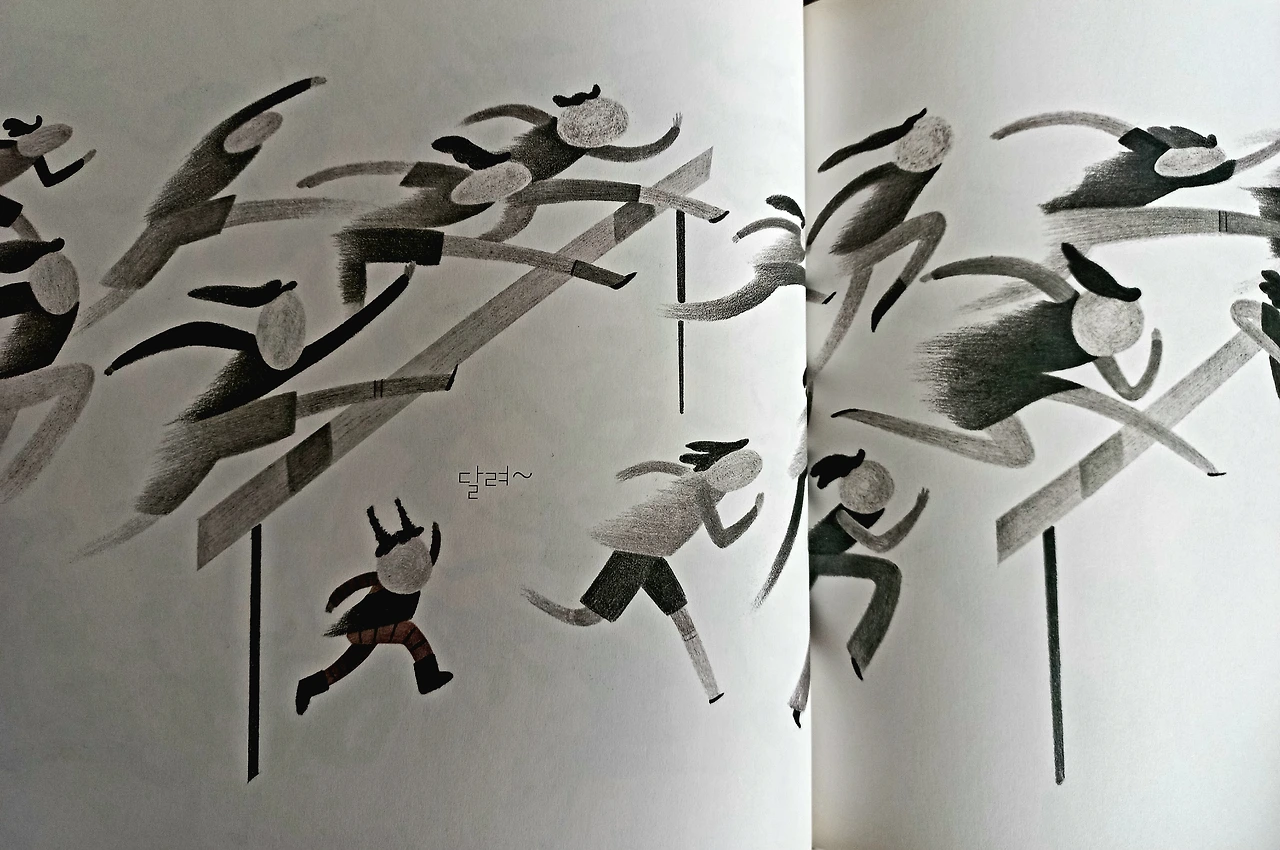 달려~